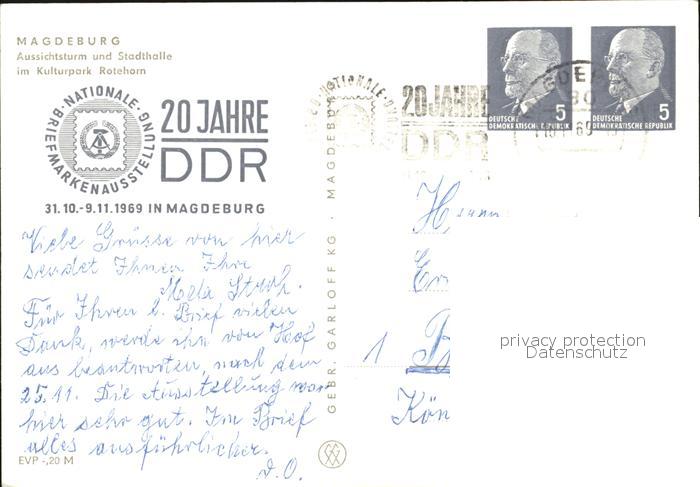 MAGDEBURG
Aussichtsturm und Stadthalle
im Kulturpark Rotehorn
NATIONALE
BRIEFMARKENAUSSTELLUNG
20 JAHRE
DDR
31.10.-9.11.1969 IN MAGDEBURG
Viele Grüsse von hier
sendet Ihnen Ihre
Mela Stroh.
Für Ihren l. Brief vielen
Dank, werde ihn von Hof
aus beantworten, nach dem
25.11. Die Ausstellung war
hier sehr gut. Im Brief
alles ausführlicher.
d. O.
EVP -,20 M
GEBR. GARLOFF KG · MAGDEBURG
NATIONALE
20 JAHRE
DDR
5
DEUTSCHE
DEMOKRATISCHE REPUBLIK
5
DEUTSCHE
DEMOKRATISCHE REPUBLIK
1
Kön
privacy protection
Datenschutz